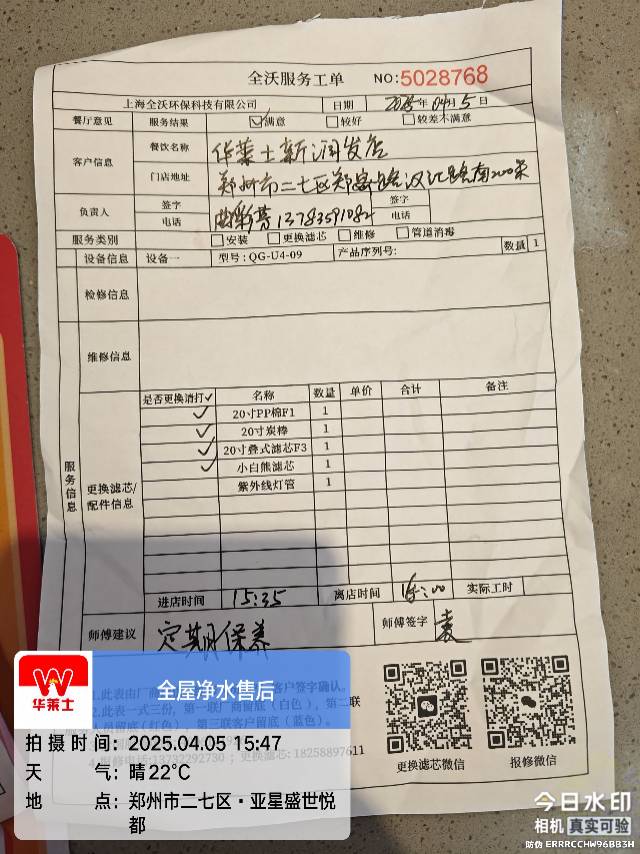 全沃服务工单 NO:5028768
上海全沃环保科技有限公司 日期 2025年04月5日
餐厅意见 服务结果 ☑满意 □较好 □较差不满意
客户信息 餐饮名称 华莱士新润发店
门店地址 郑州市二七区郑密路汉江路南200米
负责人 签字 签字
电话 13783591082 电话
服务类别 □安装 □更换滤芯 □维修 □管道消毒
设备信息 设备一 型号:QG-U4-09 产品序列号: 数量 1
检修信息
维修信息
服务信息
更换滤芯/配件信息
是否更换请打✓ 名称 数量 单价 合计 备注
✓ 20寸PP棉F1 1
✓ 20寸炭棒 1
✓ 20寸叠式滤芯F3 1
✓ 小白熊滤芯 1
紫外线灯管 1
进店时间 15:35 离店时间 实际工时
师傅建议 定期保养 师傅签字 袁
1.此表由厂商 客户签字确认。
2.此表一式三份,第一联厂商留底(白色),第二联
人员留底(红色),第三联客户留底(蓝色)。
4.报修电话:13732292730 ; 更换滤芯:18258897611
更换滤芯微信 报修微信
华莱士
全屋净水售后
拍摄时间:2025.04.05 15:47
天 气:晴22℃
地 点:郑州市二七区·亚星盛世悦
都
今日水印
相机 真实可验
防伪 ERRRCCHW96BB3H